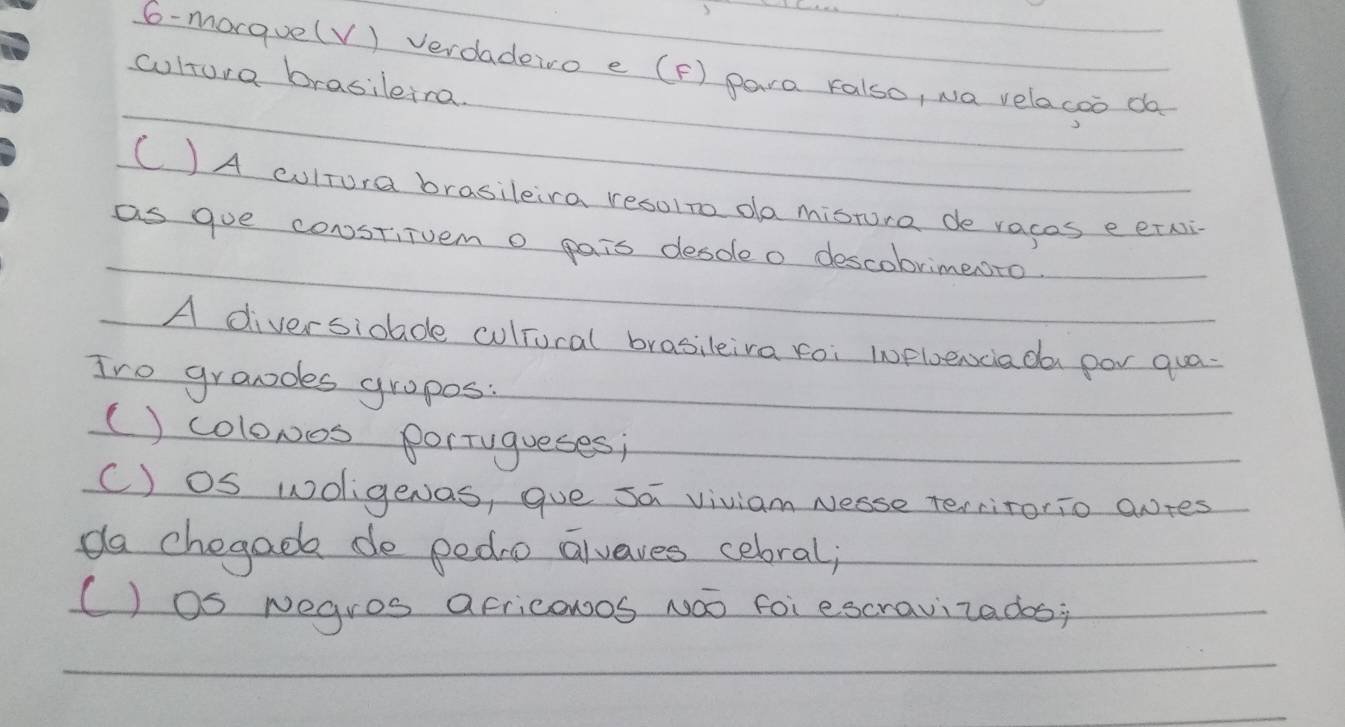 6-marque (V) verdadeiro e (F) para falso, na relação da
cultura brasileira.
( ) A cultura brasileira resulta da mistura de raças e etni-
as que constituem o país desde o descobrimento.
A diversidade cultural brasileira foi influenciada por qua-
tro grandes grupos:
( ) colonos portugueses;
( ) os indigenas, que já viviam nesse território antes
da chegada de pedro álvares cebral;
( ) os negros africanos não foi escravizados;